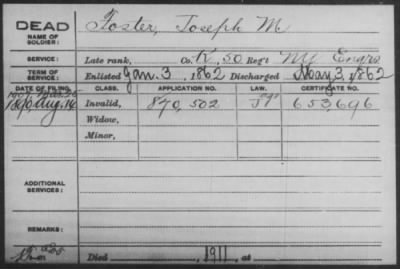 DEAD
NAME OF SOLDIER: Foster, Joseph M
SERVICE: Late rank, Co. K, 50 Reg't NY Engrs
TERM OF SERVICE: Enlisted Jan. 3, 1862 Discharged May 3, 1862
DATE OF FILING. CLASS. APPLICATION NO. LAW. CERTIFICATE NO.
1890, Aug. 14 Invalid, 840,502 653,696
Widow,
Minor,
ADDITIONAL SERVICES:
REMARKS:
Died 1911, at